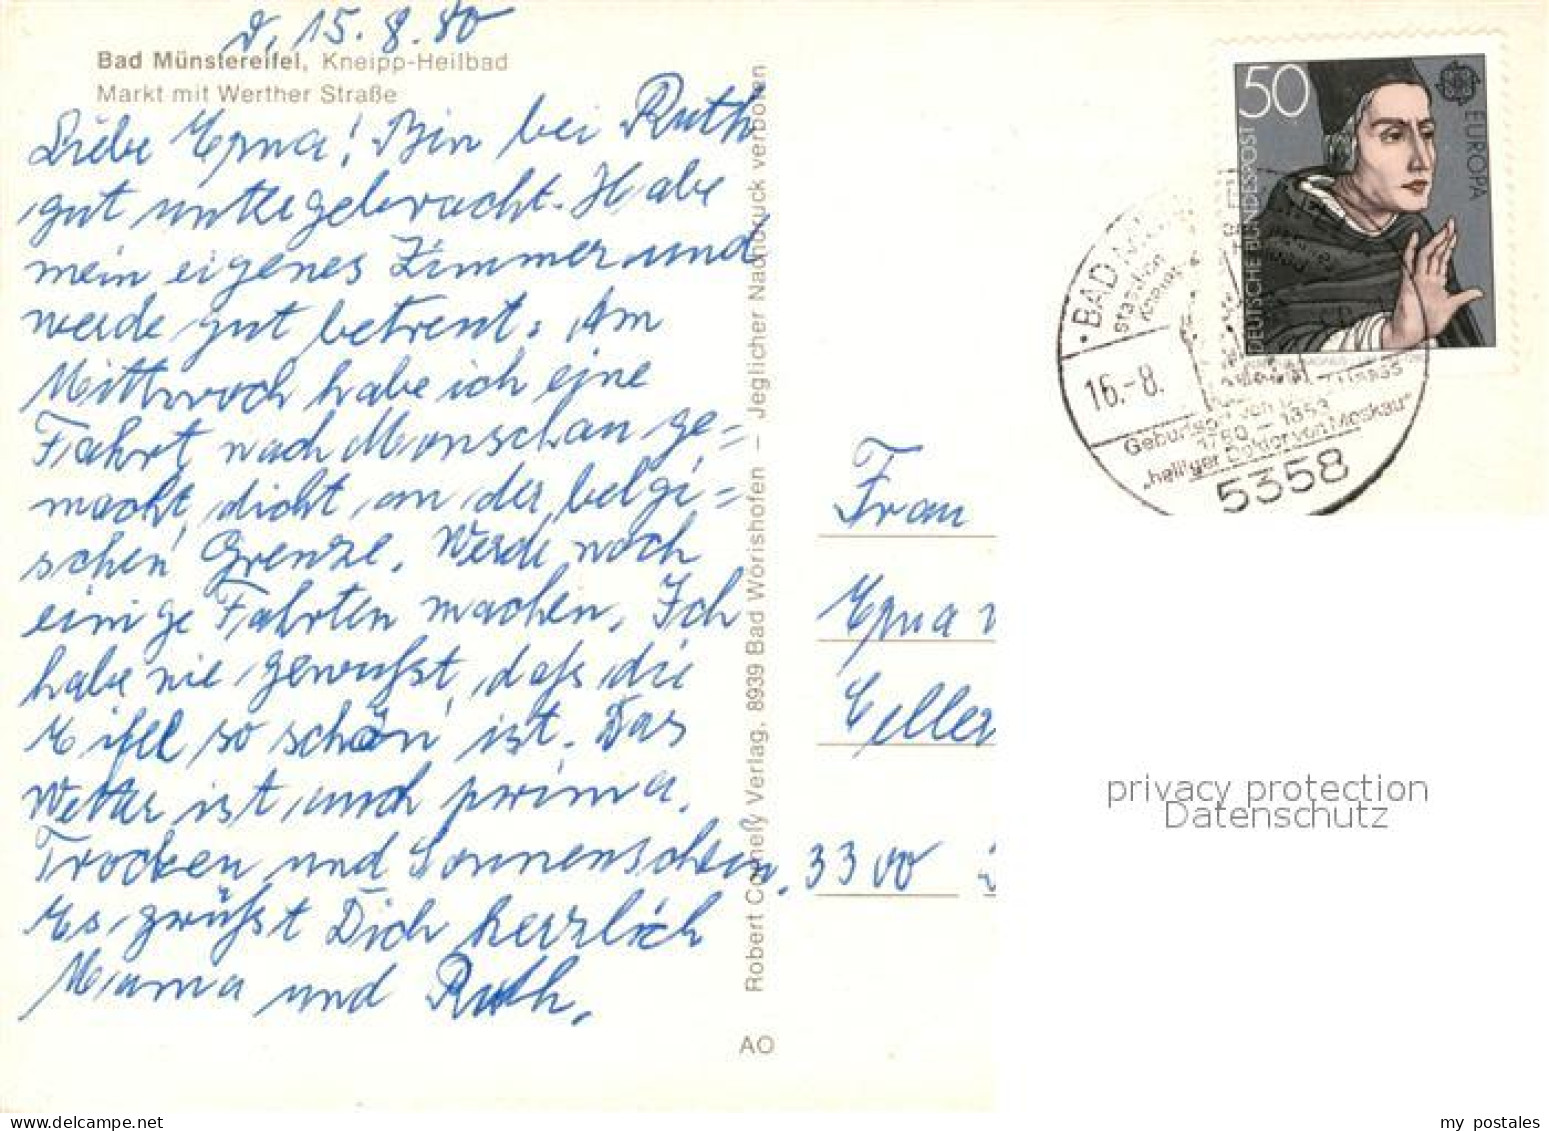 d. 15.8.80
Bad Münstereifel, Kneipp-Heilbad
Markt mit Werther Straße
Liebe Erna! Bin bei Ruth
gut untergebracht. Habe
mein eigenes Zimmer und
werde gut betreut. Am
Mittwoch habe ich eine
Fahrt nach Monschau ge=
macht, dicht an der belgi=
schen Grenze. Werde noch
einige Fahrten machen. Ich
habe nie gewußt, daß die
Eifel so schön ist. Das
Wetter ist auch prima.
Trocken und Sonnenschein.
Es grüßt Dich herzlich
Mama und Ruth.
Robert Corneßy Verlag, 8939 Bad Wörishofen – Jeglicher Nachdruck verboten
AO
50
EUROPA
DEUTSCHE BUNDESPOST
BAD
16.-8.
1780 – 1853
"heiliger Doktor von Moskau"
5358
Frau
Erna
Celler
3300
privacy protection
Datenschutz
my postales